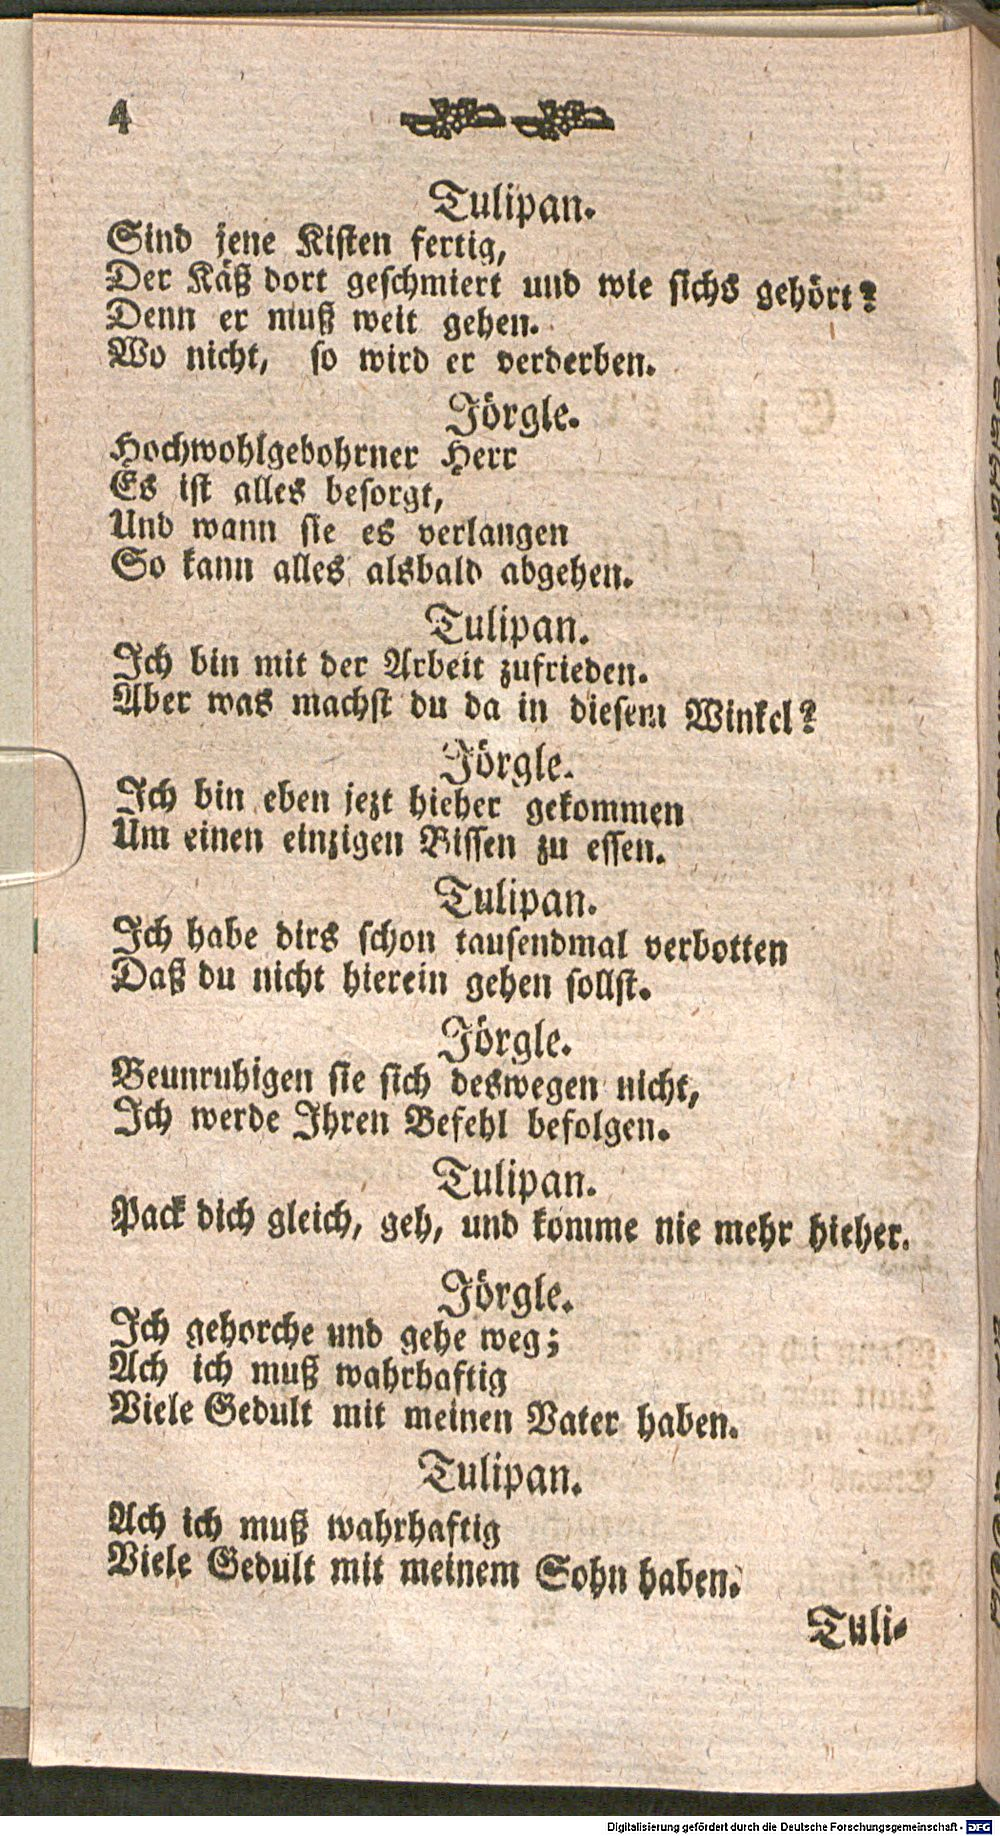 4
Tulipan.
Sind jene Kisten fertig,
Der Käß dort geschmiert und wie sichs gehört?
Denn er muß weit gehen.
Wo nicht, so wird er verderben.
Jörgle.
Hochwohlgebohrner Herr
Es ist alles besorgt,
Und wann sie es verlangen
So kann alles alsbald abgehen.
Tulipan.
Ich bin mit der Arbeit zufrieden.
Aber was machst du da in diesem Winkel?
Jörgle.
Ich bin eben jezt hieher gekommen
Um einen einzigen Bissen zu essen.
Tulipan.
Ich habe dirs schon tausendmal verbotten
Daß du nicht hierein gehen sollst.
Jörgle.
Beunruhigen sie sich deswegen nicht,
Ich werde Ihren Befehl befolgen.
Tulipan.
Pack dich gleich, geh, und komme nie mehr hieher.
Jörgle.
Ich gehorche und gehe weg;
Ach ich muß wahrhaftig
Viele Gedult mit meinen Vater haben.
Tulipan.
Ach ich muß wahrhaftig
Viele Gedult mit meinem Sohn haben.
Tuli-
Digitalisierung gefördert durch die Deutsche Forschungsgemeinschaft - DFG